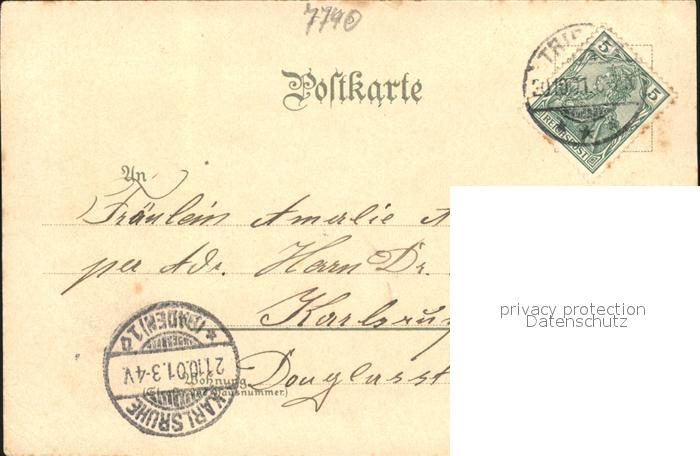 7740
Postkarte
5 5
REICHSPOST
An
Fräulein Amerlie A
per Adr. Herrn Dr.
Karlsru
Douglasst
Wohnung
(Straße und Hausnummer)
KARLSRUHE (BADEN) 1
21.10.01.3-4V.
privacy protection
Datenschutz